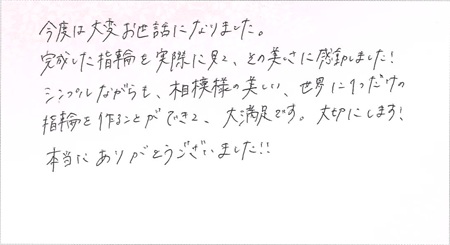 今度は大変お世話になりました。
完成した指輪を実際に見て、その美しさに感動しました!
シンプルながらも、相模様の美しい、世界に1つだけの
指輪を作ることができて、大満足です。大切にします!
本当にありがとうございました!!